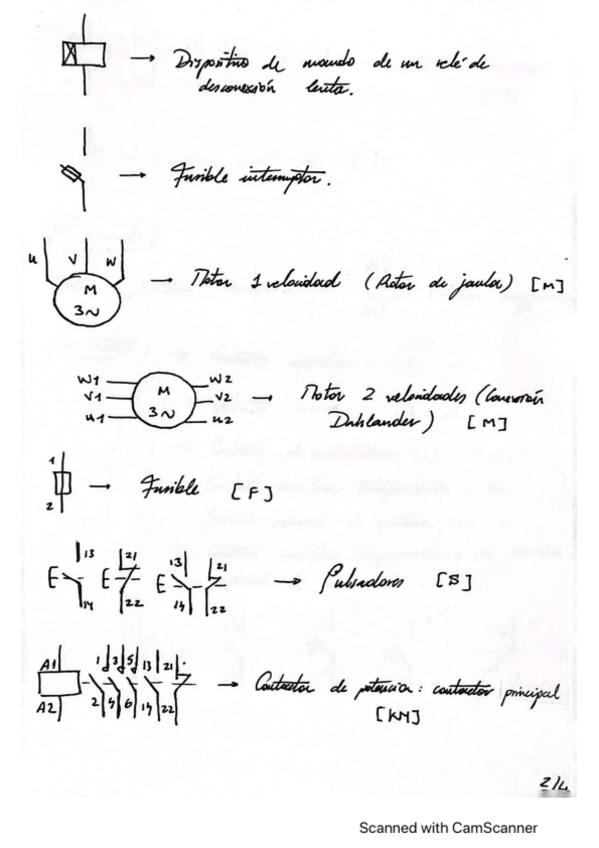 → Dispositivo de mando de un relé de
desconexión lenta.
→ Fusible interruptor.
U V W
M
3~
→ Motor 1 velocidad (Rotor de jaula) [M]
W1 W2
V1 M V2
U1 3~ U2
→ Motor 2 velocidades (Conexión
Dahlander) [M]
1
2
→ Fusible [F]
13 21 13 21
14 22 14 22
→ Pulsadores [S]
A1 1 3 5 13 21
A2 2 4 6 14 22
→ Contactor de potencia: contactor principal
[KM]
2/4
Scanned with CamScanner